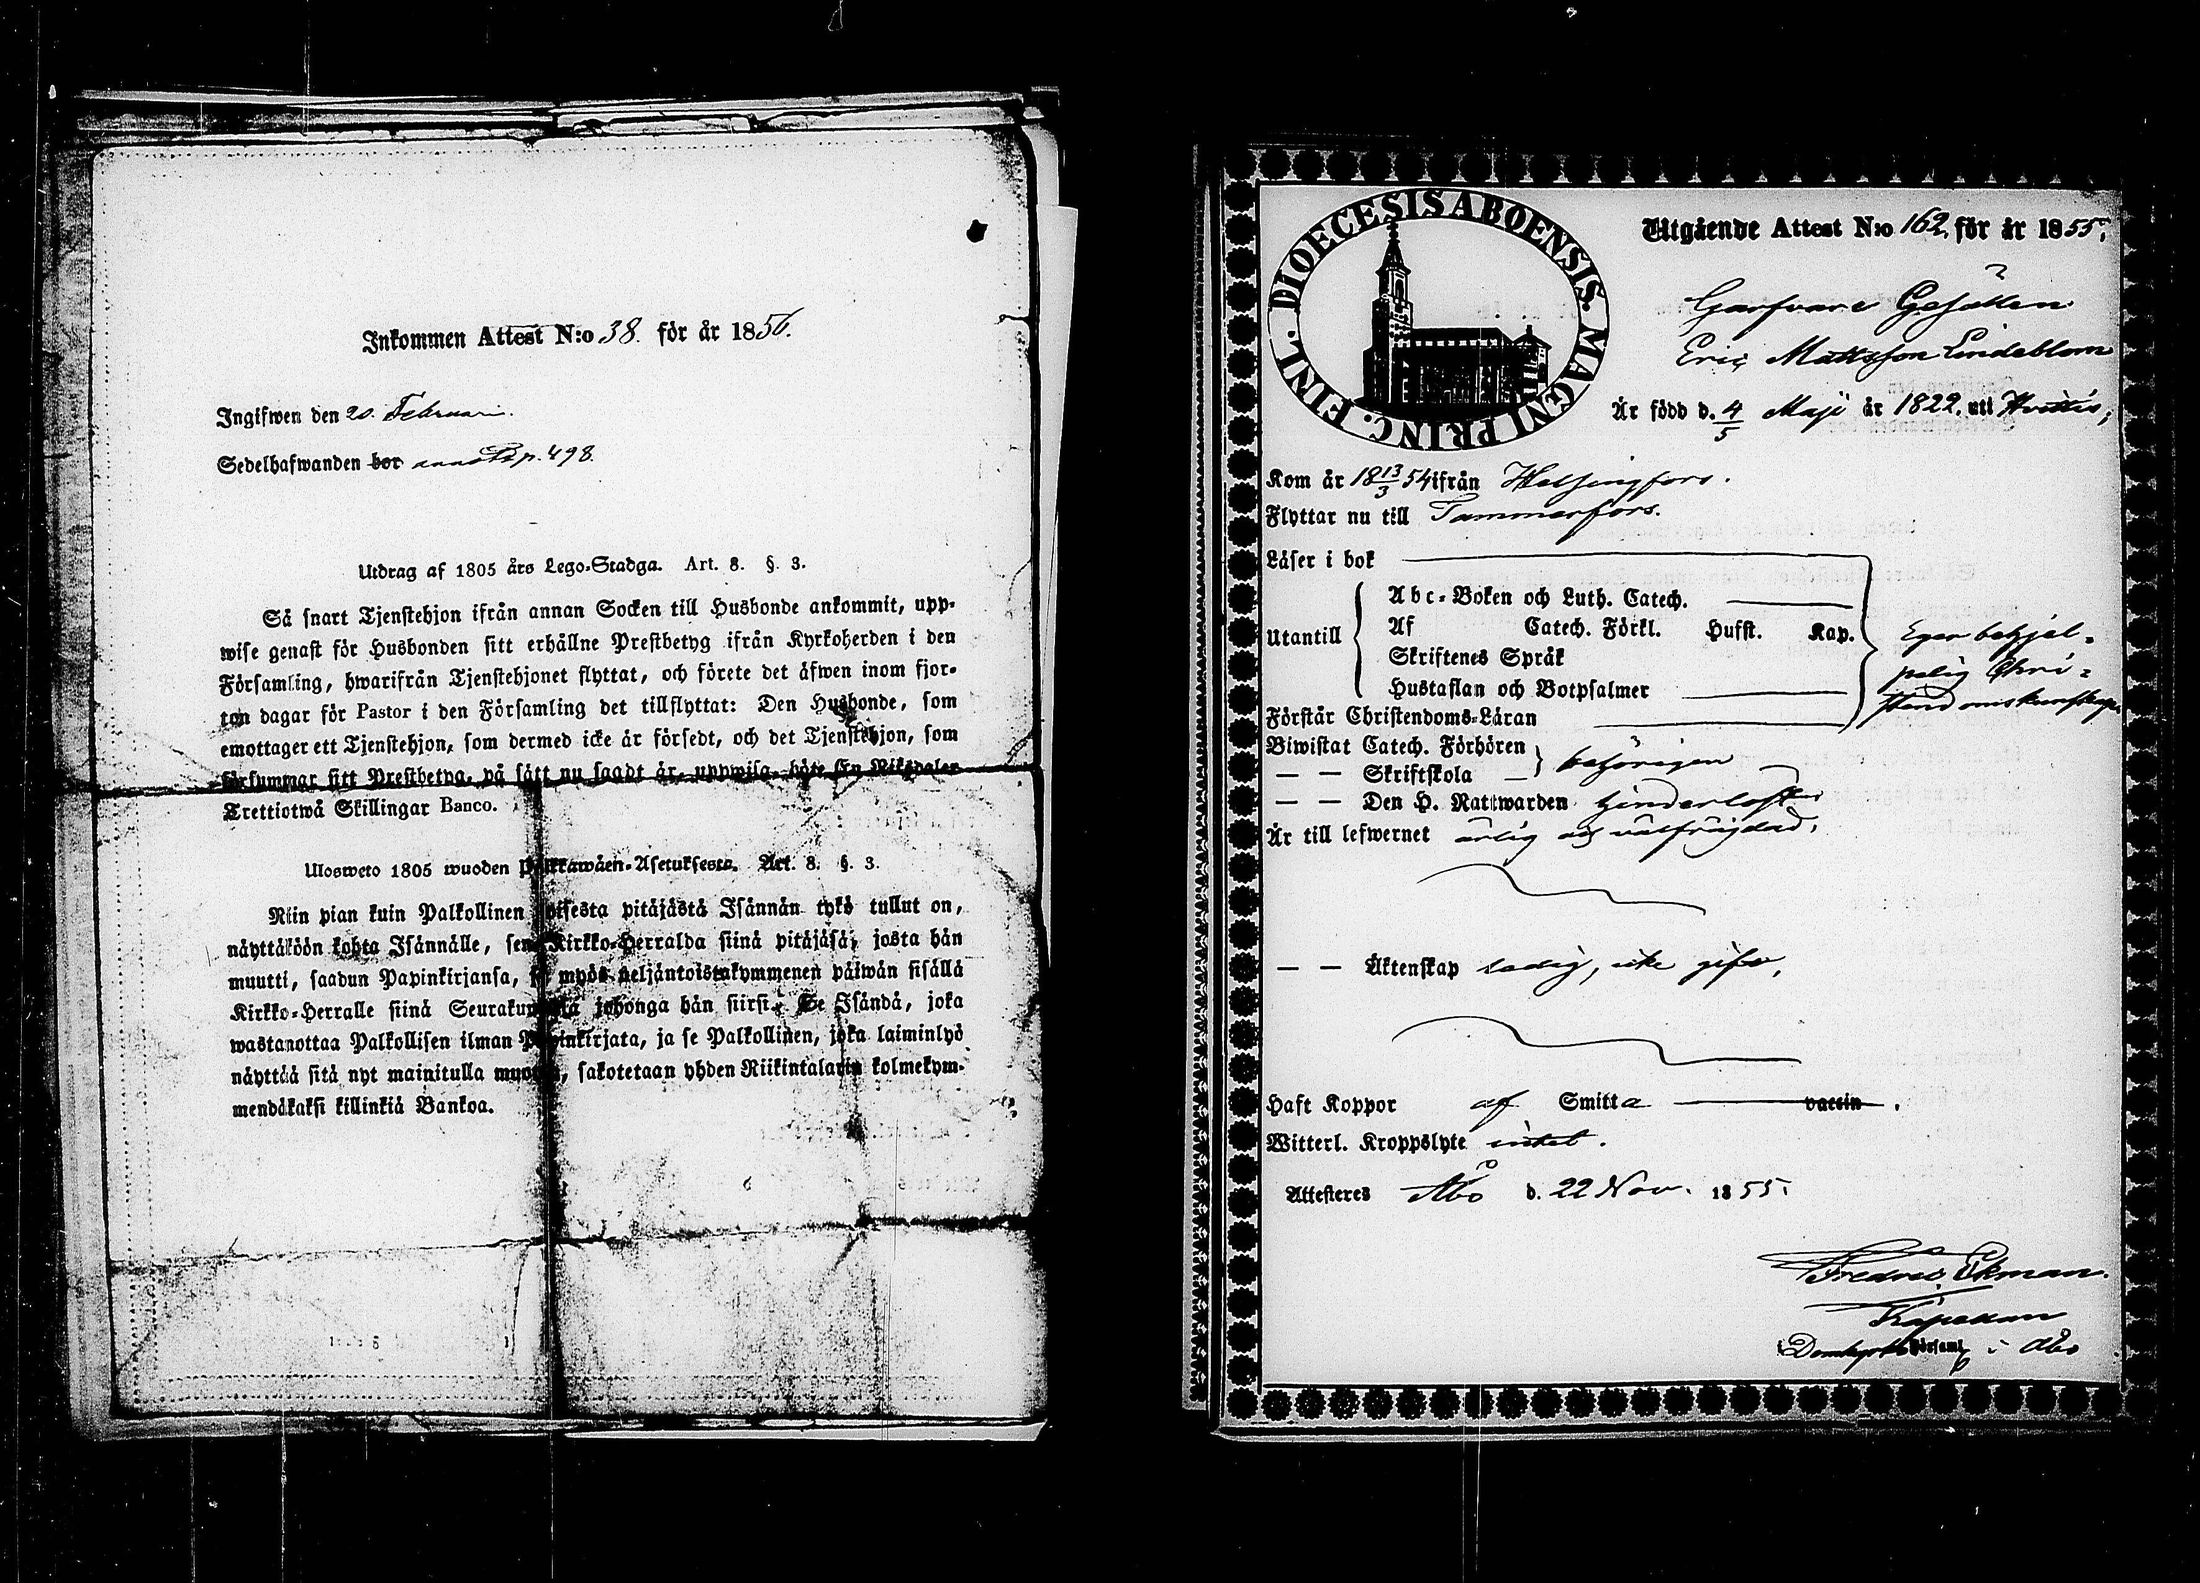 Inkommen Attest N:o 38. för år 1856.
Ingifwen den 20. Februari.
Sedelhafwanden bor p. 498.
Utdrag af 1805 års Lego-Stadga. Art. 8. §. 3.
Så snart Tjenstehjon ifrån annan Socken till Husbonde ankommit, upp-
wise genast för Husbonden sitt erhållne Prestbetyg ifrån Kyrkoherden i den
Församling, hwarifrån Tjenstehjonet flyttat, och förete det äfwen inom fjor-
ton dagar för Pastor i den Församling det tillflyttat: Den Husbonde, som
emottager ett Tjenstehjon, som dermed icke är försedt, och det Tjenstehjon, som
försummar sitt Prestbetyg, på sätt nu sagdt är, uppwisa, böte En Riksdaler
Trettiotwå Skillingar Banco.
Ulosweto 1805 wuoden Palkkawäen-Asetuksesta. Art. 8. §. 3.
Niin pian kuin Palkollinen toisesta pitäjästä Isännän tykö tullut on,
näyttäköön kohta Isännälle, sen Kirkko-Herralda siinä pitäjäsä, josta hän
muutti, saadun Papinkirjansa, ja myös neljäntoistakymmenen päiwän sisällä
Kirkko-Herralle siinä Seurakunnasa johonga hän siirsi. Se Isändä, joka
wastanottaa Palkollisen ilman Papinkirjata, ja se Palkollinen, joka laiminlyö
näyttää sitä nyt mainitulla muotoa, sakotetaan yhden Riikintalarin kolmekym-
mendäkaksi killinkiä Bankoa.
DIOECESIS ABOENSIS. MAGNI PRINC. FINL.
Utgående Attest N:o 162. för år 1855.
Garfvare Gesällen
Eric Mattsson Lindeblom
Är född d. 4/5 Maji år 1822. uti Hvittis,
Kom år 18 13/3 54 ifrån Helsingfors.
Flyttar nu till Tammerfors.
Läser i bok
Utantill
Abc-Boken och Luth. Catech.
Af Catech. Förkl. Hufst. Kap.
Skriftenes Språk
Hustaflan och Botpsalmer
Eger behjel-
pelig Chri-
stendomskunskap
Förstår Christendoms-Läran
Biwistat Catech. Förhören
— — Skriftskola — behörigen
— — Den H. Nattwarden
Är till lefwernet ärlig och välfrägdad,
— — Äktenskap ledig, icke gift,
Haft Koppor af Smitta vaccin.
Witterl. Kroppslyte intet.
Attesteras Åbo d. 22 Nov. 1855.
Fredric Ekman.
Kapellan
Domkyrko Församl i Åbo